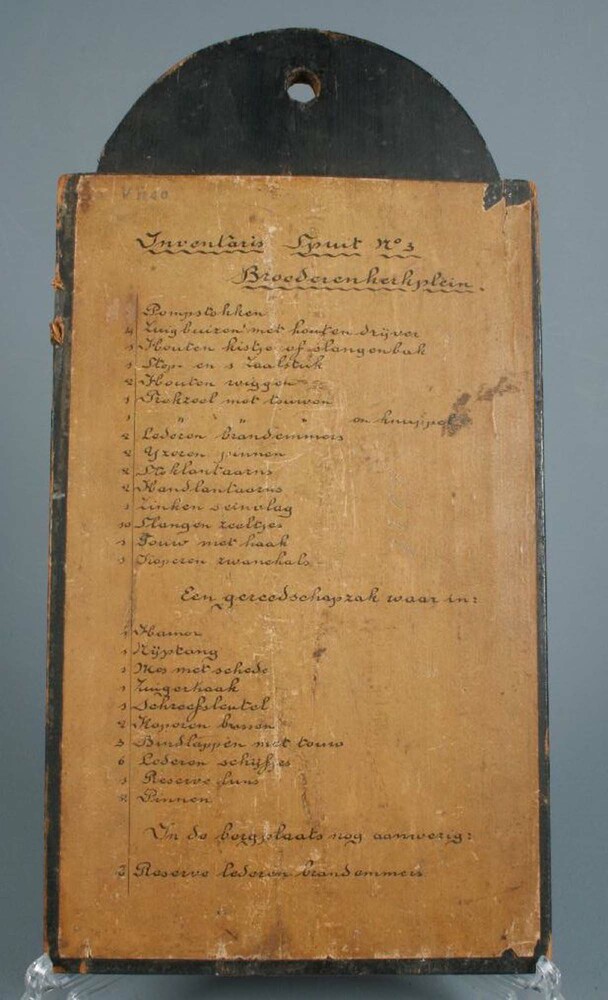 Inventaris Spuit No 3
Broederenkerkplein.
Pompstokken
4 Zuigbuizen met houten drijver
1 Houten kistje of slangenbak
1 Stop- en 1 Zaalstuk
2 Houten wiggen
1 Trekzeel met touwen
1 " " " en knuppel
2 Lederen brandemmers
2 Yzeren pinnen
2 Stoklantaarns
2 Handlantaarns
1 Linken seinvlag
10 Slangen zeeltjes
1 Touw met haak
1 Koperen zwanehals
Een gereedschapzak waar in:
1 Hamer
1 Nijptang
1 Mes met schede
1 Zuigerhaak
1 Schroefsleutel
2 Koperen bussen
3 Bindlappen met touw
6 Lederen schijfjes
1 Reserve luns
2 Pinnen
In de bergplaats nog aanwezig:
3 Reserve lederen brandemmers